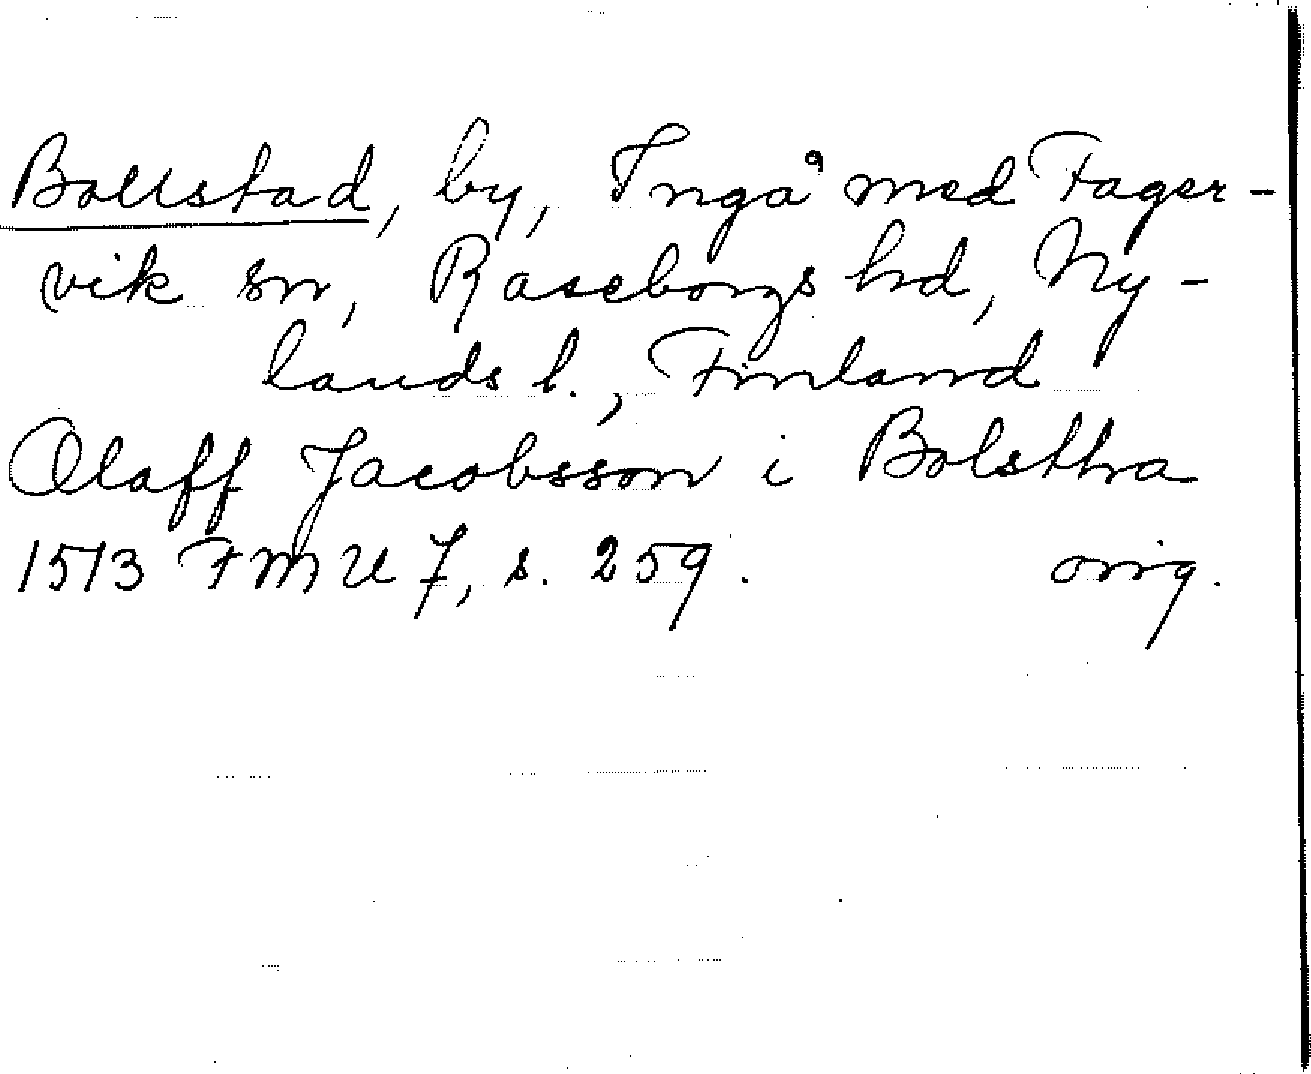 Bollstad, by, Ingå med Fager-
vik sn, Raseborgs hd, Ny-
lands l., Finland
Olaff Jacobsson i Bolsthra
1513 FMU 7, s. 259. orig.